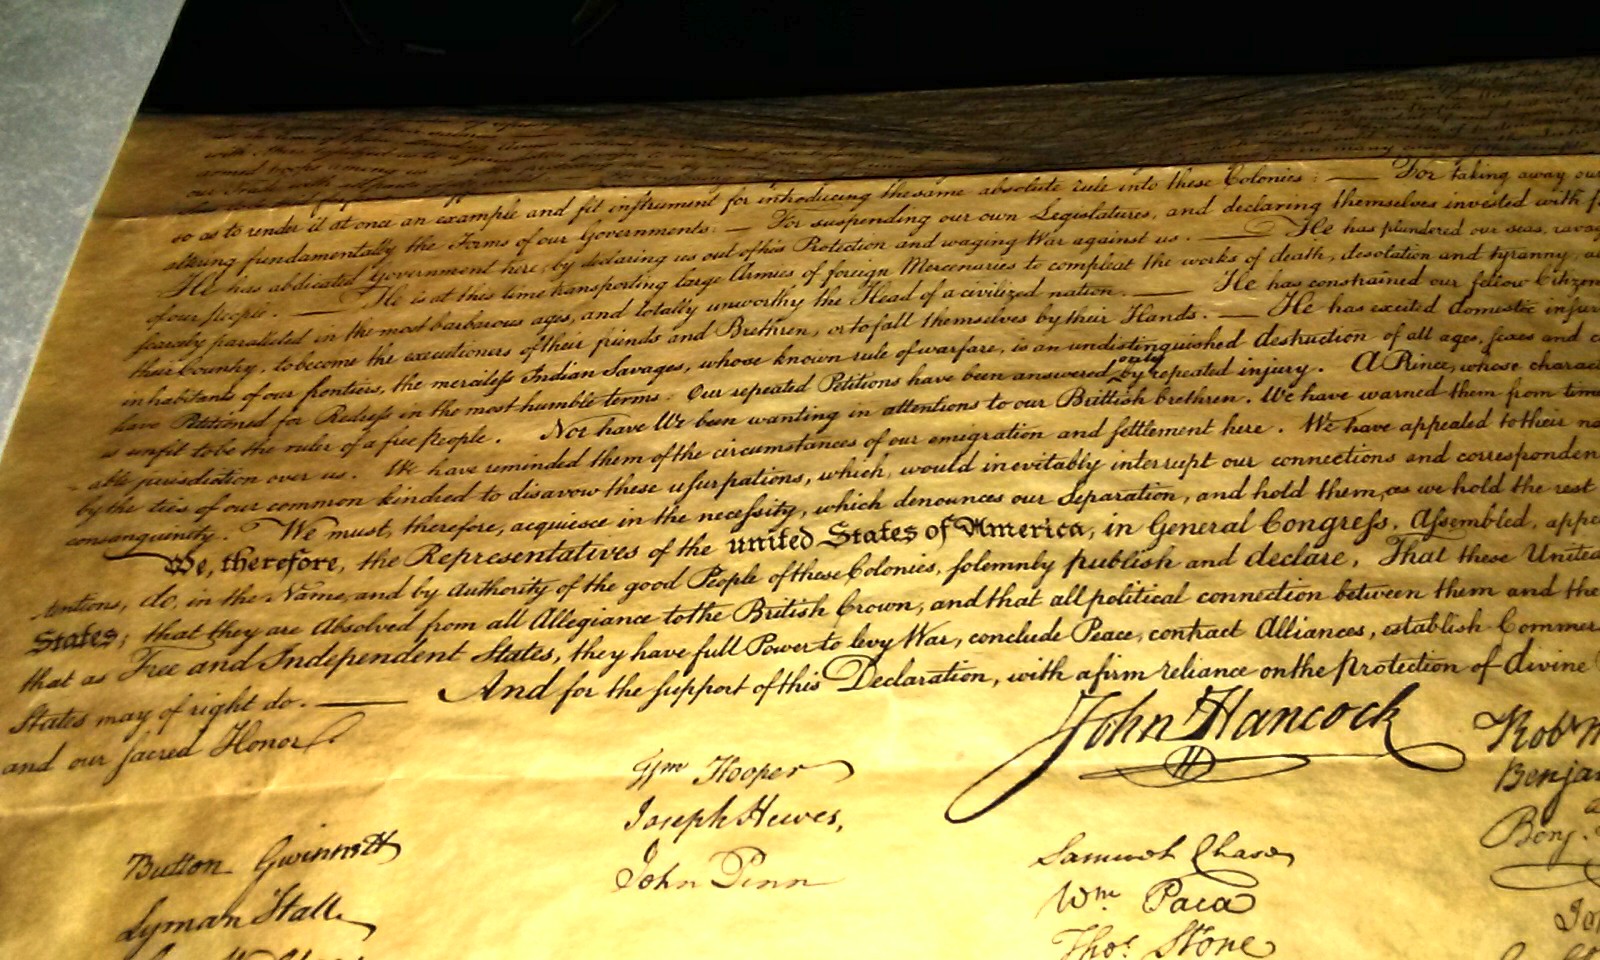 armed troops among us
our Trade with all parts
so as to render it at once an example and fit instrument for introducing the same absolute rule into these Colonies : — For taking away our
altering fundamentally the Forms of our Governments: — For suspending our own Legislatures, and declaring themselves invested with
He has abdicated Government here, by declaring us out of his Protection and waging War against us . — He has plundered our seas,
of our people . — He is at this time transporting large Armies of foreign Mercenaries to compleat the works of death, desolation and tyranny,
scarcely paralleled in the most barbarous ages, and totally unworthy the Head of a civilized nation . — He has constrained our fellow Citizen
their Country, to become the executioners of their friends and Brethren, or to fall themselves by their Hands . — He has excited domestic
inhabitants of our frontiers, the merciless Indian Savages, whose known rule of warfare, is an undistinguished destruction of all ages, sexes and
have Petitioned for Redress in the most humble terms : Our repeated Petitions have been answered only by repeated injury . A Prince, whose
is unfit to be the ruler of a free people . Nor have We been wanting in attentions to our Brittish brethren . We have warned them from time
able jurisdiction over us . We have reminded them of the circumstances of our emigration and settlement here . We have appealed to their
by the ties of our common kindred to disavow these usurpations, which, would inevitably interrupt our connections and
consanguinity . We must, therefore, acquiesce in the necessity, which denounces our Separation, and hold them, as we hold the rest
We, therefore, the Representatives of the united States of America, in General Congress, Assembled,
tentions, do, in the Name, and by Authority of the good People of these Colonies, solemnly publish and declare, That these United
States; that they are Absolved from all Allegiance to the British Crown, and that all political connection between them and the
that as Free and Independent States, they have full Power to levy War, conclude Peace, contract Alliances, establish Commer
States may of right do . — And for the support of this Declaration, with a firm reliance on the protection of divine
and our sacred Honor .
John Hancock
Wm Hooper
Joseph Hewes,
John Penn
Button Gwinnett
Lyman Hall
Samuel Chase
Wm. Paca
Thos. Stone
Robt M
Benja
Benj.